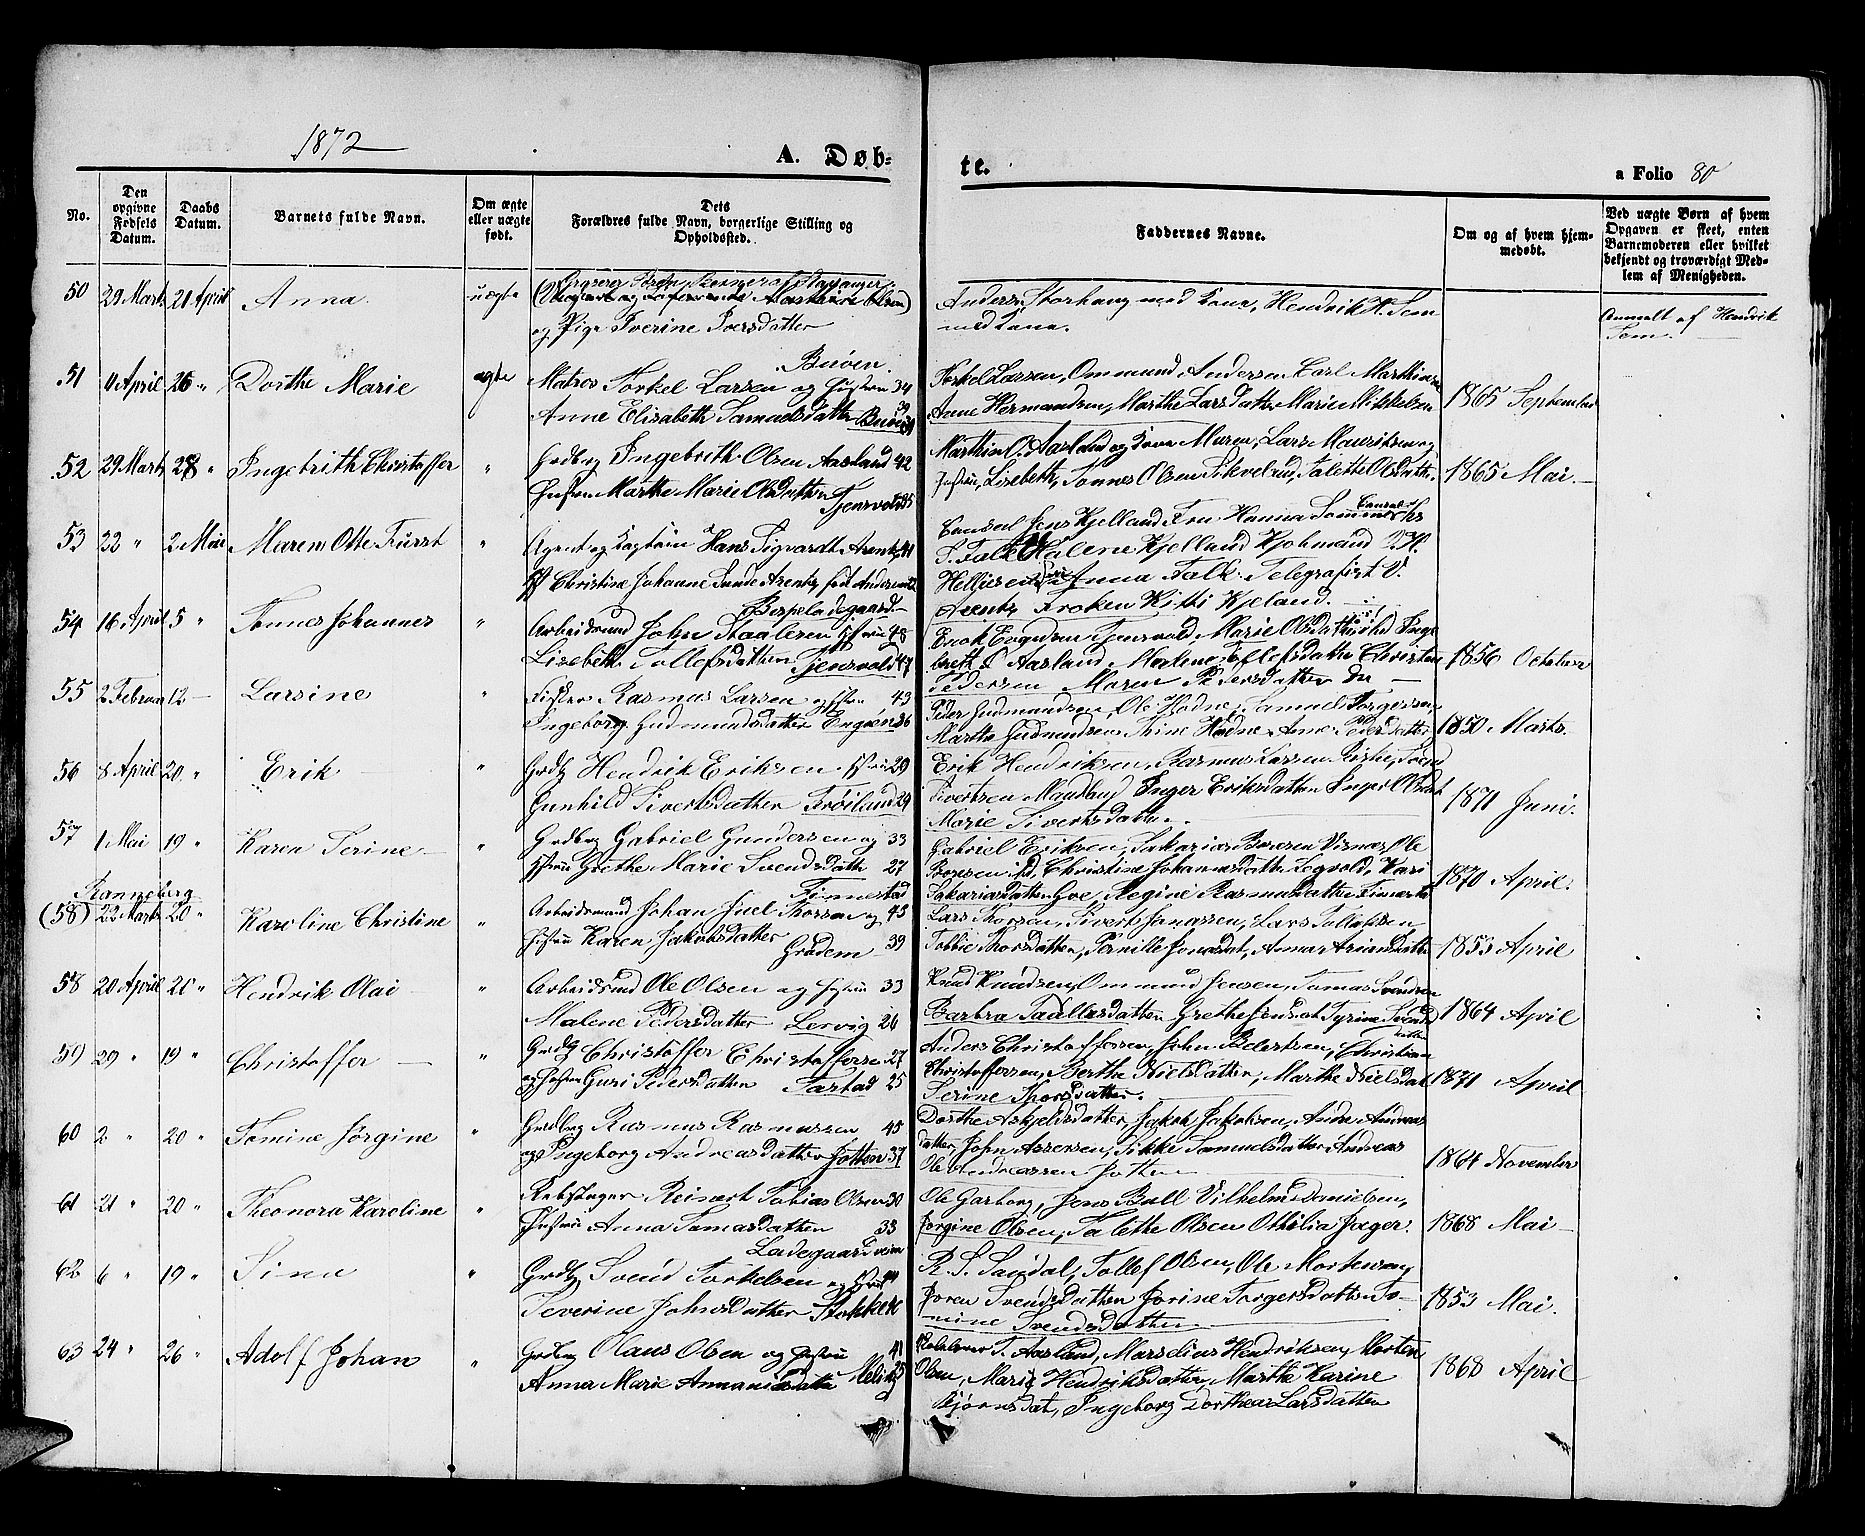 1872
A. Døb-
te.
a Folio 80
No.
Den opgivne Fødsels Datum.
Daabs Datum.
Barnets fulde Navn.
Om ægte eller uægte født.
Dets Forældres fulde Navn, borgerlige Stilling og Opholdssted.
Faddernes Navne.
Om og af hvem hjemmedøbt.
Ved uægte Børn af hvem Opgaven er skeet, enten Barnemoderen eller hvilket bekjendt og troværdigt Medlem af Menigheden.
50 29 Marts 21 April Anna uægte
og Pige Iverine Iversdatter
Anders Storhaug med Kone, Hendrik H. Sem
med Kone.
Anmeldt af Hendrik
Sem.
51 April 26 " Dorthe Marie ægte Matros Torkel Larsen og Hustru 34
Buøen.
Anne Elisabeth Samuelsdatter
Torkel Larsen, Ommund Andersen Carl Marthinsen
Anne Hermandsen, Marthe Larsdatter Marie Mikkelsen
1865 September
52 29 Marts 28 " Ingebrith Christoffer " Grdbg Ingebrith Olsen Aasland 42
Hustru Marthe Marie Olsdatter
Tjensvold 35
Marthin O. Aasland og Kone Maren, Lars Mauritsen og
Hustru, Lisebeth, Tønnes Olsen Talette Olsdatter.
1865 Mai.
53 22 " 2 Mai Maren Otte Furst " Agent og Kaptein Hans Sigvardt Arentz 41
Christine Johanne Sunde Arentz, født Andersen 22
Bispeladegaard
Consul Jens Kjelland Fru Hanna Sømme
T. Falk Malene Kjelland Kjøbmand
Helliesen Anna Falk Telegrafist V.
Arentz Frøken Kitti Kjeland.
54 16 April 5 " Tønnes Johannes " Arbeidsmd John Staalesen Hstru 48
Lisebeth Tollefsdatter Tjensvold 47
Erik Endresen Tjensvold Marie Olsdatter
Aasland, Malene Tollefsdatter Christen
Pedersen Maren Pedersdatter
1856 October
55 2 Februar 12 Larsine " Fisker Rasmus Larsen og Hstru 43
Ingeborg Gudmundsdatter Engøen 36
Peder Gudmundsen, Ole Hodne, Samuel Torgersen
Marthe Gudmundsen Stine Hodne Anne Pedersdatter
1850 Marts.
56 8 April 20 " Erik " Grdbg Hendrik Eriksen Hstru 29
Gunhild Sivertsdatter Frøiland 29
Erik Hendriksen, Rasmus Larsen Riske, Svend
Sivertsen Maudland Inger Eriksdatter
Marie Sivertsdatter.
1871 Juni.
57 1 Mai 19 " Karen Serine " Grdbg Gabriel Gundersen og 33
Hstru Grethe Marie Svendsdatter 27
Finnestad
Gabriel Eriksen, Sakarias Børesen Visnæs, Ole
Børesen ibd, Christine Johannesdatter Legvold, Kari
Sakariasdatter Goe, Regine Rasmusdatter Finnestad
1870 April.
Ranneberg
(58) 22 Marts 20 " Karoline Christine " Arbeidsmand Johan Juel Thorsen og 45
Hstru Karen Jakobsdatter 39
Grødem
Lars Thorsen, Sivert Janassen, Lars Tollefsen
Tobbie Thorsdatter, Pernille Jonasdat, Anna Ariansdatter
1853 April
58 20 April 20 " Hendrik Olai " Arbeidsmd Ole Olsen og Hustru 33
Malene Pedersdatter Lervig 26
Knud Knudsen, Ommund Jensen, Tomas Svendsen
Barbra Paullasdatter Grethe Jensdat Tyrine Svendsdatter
1864 April
59 29 " 19 " Christoffer " Grdbg Christoffer Christoffersen 27
og Hustru Guri Pedersdatter Tastad 25
Anders Christoffersen, John Pedersen, Christian
Christoffersen, Berthe Nielsdatter, Marthe Nielsdat
Serine Thorsdatter.
1871 April
60 2 " 20 " Tomine Jørgine " Grdbg Rasmus Rasmussen 45
og Ingeborg Andreasdatter Jotten 37
Dorthe Askjelsdatter, Jakob Jakobsen, Andre Andreas
datter, John Assersen, Sikke Samuelsdatter Andreas
Ole Andreassen Jotten
1864 November
61 21 " 20 " Theonora Karoline " Rebslager Reinert Tobias Olsen 30
Hustru Anna Tomasdatter 33
Ladegaardsveien
Ole Garborg, Jens Bull Vilhelm Danielsen,
Jørgine Olsen, Talethe Olsen Othilia Jæger.
1868 Mai
62 6 " 19 " Sina " Grdbg Svend Torkelsen og Hstru 44
Severine Johnsdatter Stokke
R. S. Sandal, Tollef Olsen, Ole
Joren Svendsdatter Jorine Torgersdatter To-
mine Svendsdatter.
1853 Mai.
63 24 " 26 " Adolf Johan " Grdbg Olaus Olsen og Hustru 41
Anna Marie Annaniasdatter
T. Aasland, Marselius Hendriksen, Morten
Olsen, Marie Hendriksdatter, Marthe Karine
Bjørnsdat, Ingeborg Dorthea Larsdatter
1868 April